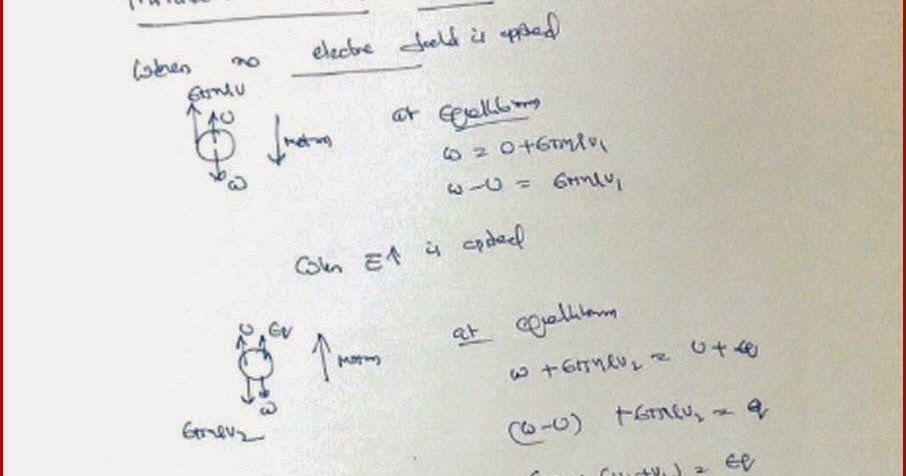 When no electric field is applied
6πηrv
U
motion
W
at equilibrium
W = U + 6πηrv₁
W - U = 6πηrv₁
When E↑ is applied
U Eq
motion
W
6πηrv₂
at equilibrium
W + 6πηrv₂ = U + Eq
(W-U) + 6πηrv₂ = q
= Eq